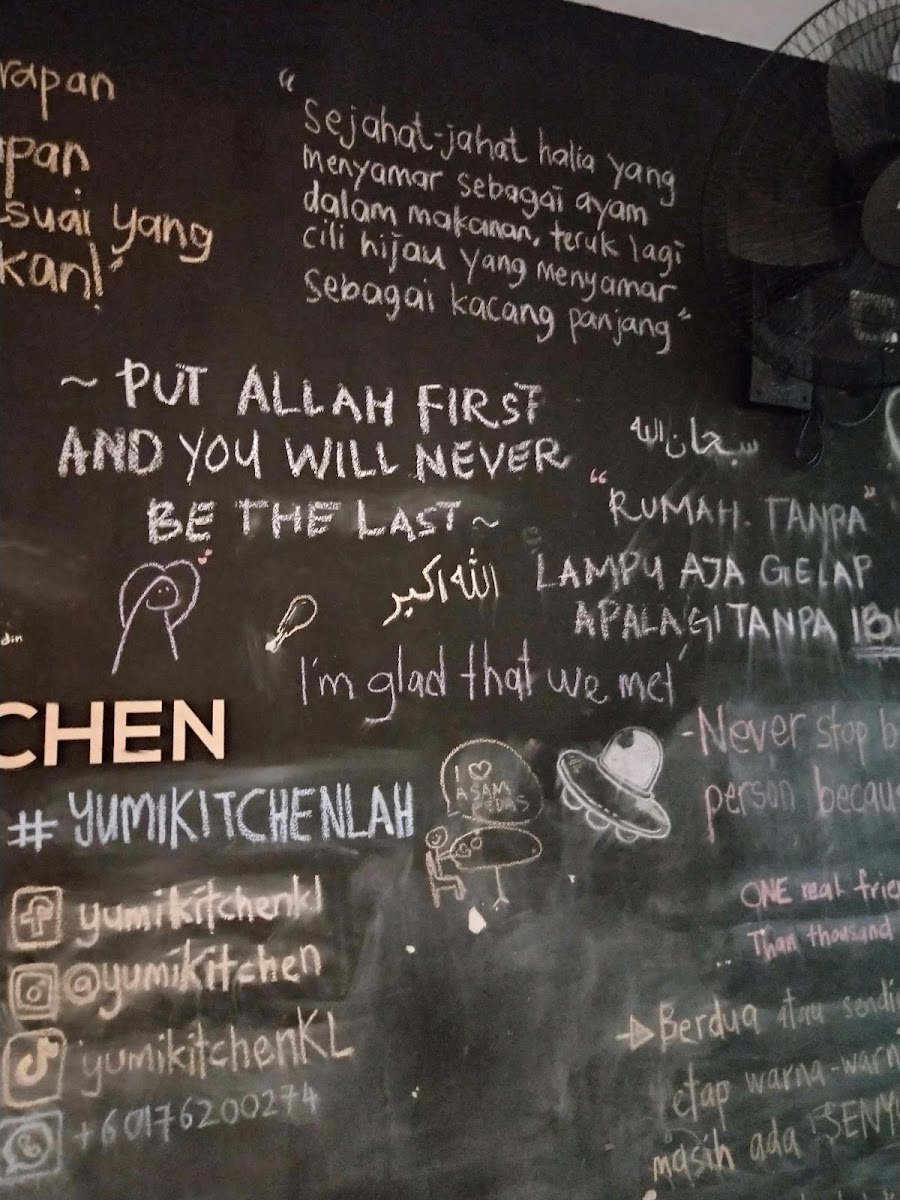 rapan
pan
suai yang
kan!"
"
Sejahat-jahat halia yang
menyamar sebagai ayam
dalam makanan, teruk lagi
cili hijau yang menyamar
sebagai kacang panjang"
~ PUT ALLAH FIRST
AND YOU WILL NEVER
BE THE LAST ~
سبحان الله
"RUMAH. TANPA"
LAMPU AJA GELAP
APALAGI TANPA IBU
الله اكبر
din
I'm glad that we met
CHEN
#YUMIKITCHENLAH
I ♡
ASAM
PEDAS
-Never stop b
person becau
yumikitchenkl
@yumikitchen
yumikitchenKL
+60176200274
ONE real frie
Than thousand
Berdua atau sendi
tetap warna-warn
masih ada SENY